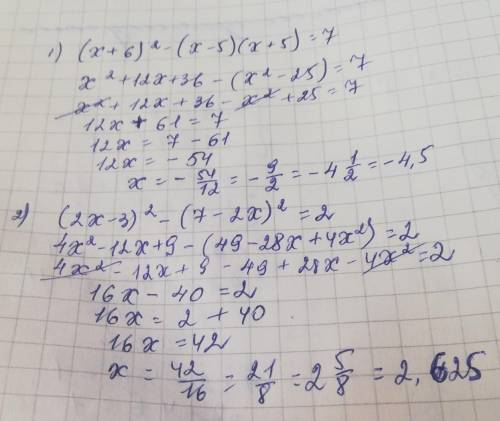 1) (x+6)² - (x-5)(x+5) = 7
x² + 12x + 36 - (x² - 25) = 7
x² + 12x + 36 - x² + 25 = 7
12x + 61 = 7
12x = 7 - 61
12x = - 54
x = - 54/12 = - 9/2 = - 4 1/2 = - 4,5
2) (2x-3)² - (7-2x)² = 2
4x² - 12x + 9 - (49 - 28x + 4x²) = 2
4x² - 12x + 9 - 49 + 28x - 4x² = 2
16x - 40 = 2
16x = 2 + 40
16x = 42
x = 42/16 = 21/8 = 2 5/8 = 2,625